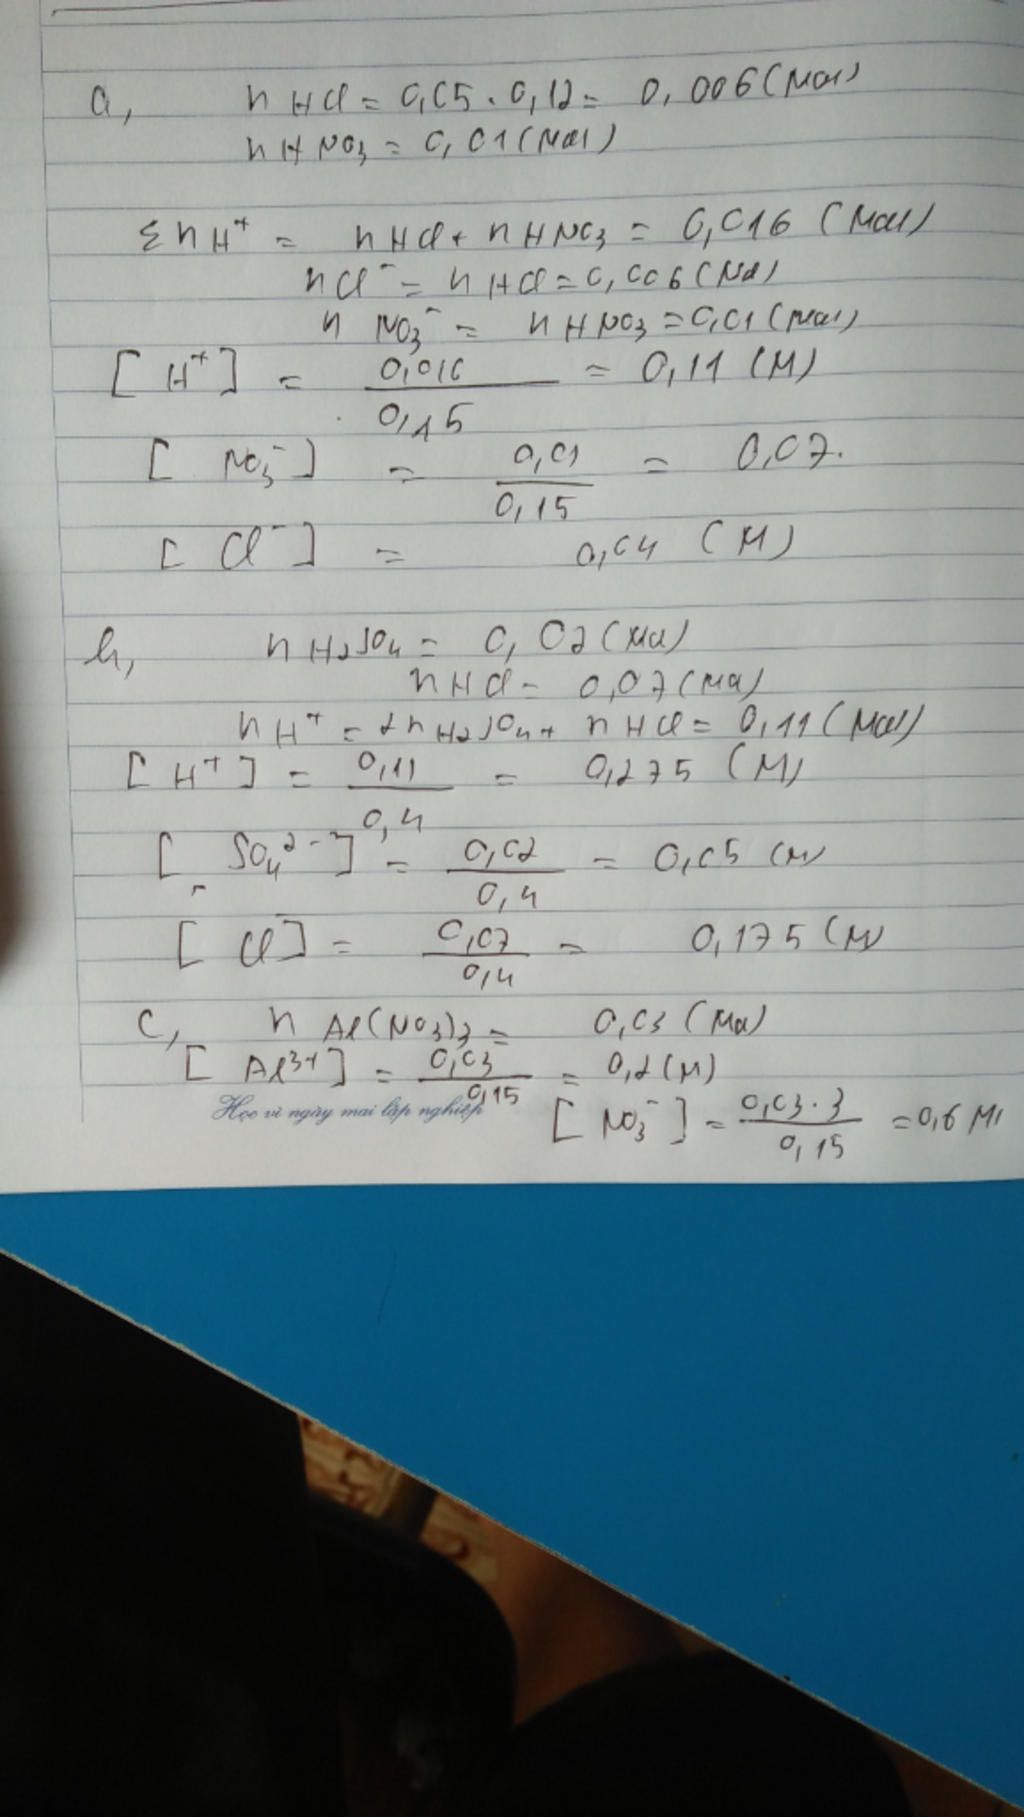 a, nHCl = 0,05 . 0,12 = 0,006 (Mol)
nHNO3 = 0,01 (Mol)
Σ nH+ = nHCl + nHNO3 = 0,016 (Mol)
nCl- = nHCl = 0,006 (Mol)
n NO3- = nHNO3 = 0,01 (Mol)
[H+] = 0,016/0,15 = 0,11 (M)
[NO3-] = 0,01/0,15 = 0,07.
[Cl-] = 0,04 (M)
b, nH2SO4 = 0,02 (Mol)
nHCl = 0,07 (Mol)
nH+ = 2nH2SO4 + nHCl = 0,11 (Mol)
[H+] = 0,11/0,4 = 0,275 (M)
[SO4 2-] = 0,02/0,4 = 0,05 (M)
[Cl-] = 0,07/0,4 = 0,175 (M)
c, n Al(NO3)3 = 0,03 (Mol)
[Al3+] = 0,03/0,15 = 0,2 (M)
Học vì ngày mai lập nghiệp
[NO3-] = 0,03.3/0,15 = 0,6 M